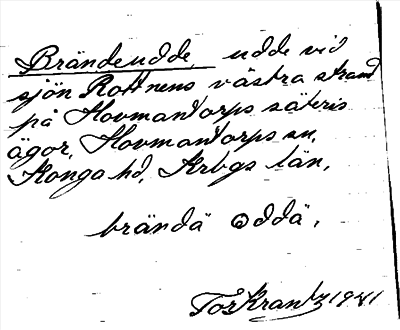 Brändeudde, udde vid
sjön Rottnens västra strand
på Hovmantorps säteris
ägor, Hovmantorps sn,
Konga hd, Krbgs län,
brändä oddä,
Tor Krantz 1941